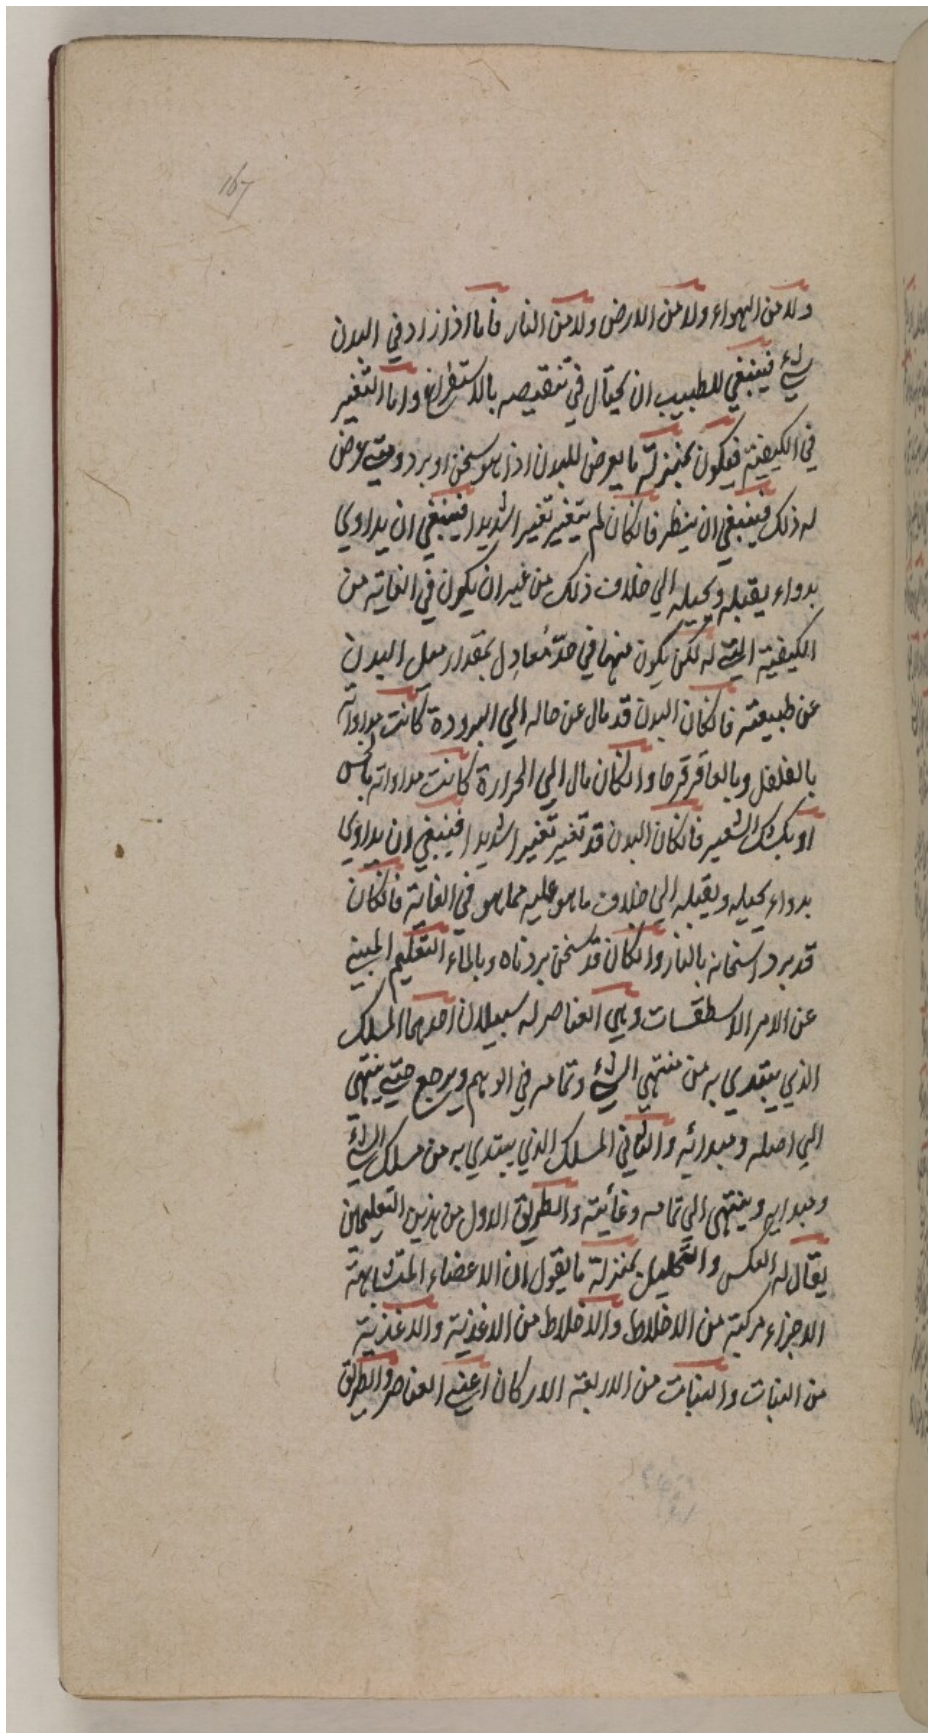 167
ولا من الهواء ولا من الارض ولا من النار فاما اذا زاد في البدن
شيء فينبغي للطبيب ان يحتال في تنقيصه بالاستفراغ واما التغير
في الكيفية فيكون بمنزلة ما يعرض للبدن اذا هو سخن او برد ومتى عرض
له ذلك فينبغي ان ينظر فان كان لم يتغير تغيرا شديدا فينبغي ان يداوي
بدواء يقبله ويحيله الي خلاف ذلك من غير ان يكون في الغاية من
الكيفية التي له لكن يكون منها في حدّ مُعادِل بمقدار ميل البدن
عن طبيعته فان كان البدن قد مال عن حاله الي البرودة كانت مداواته
بالفلفل وبالعاقرقرحا وان كان مال الي الحرارة كانت مداواته بالخس
او بكشك الشعير فان كان البدن قد تغير تغيرا شديدا فينبغي ان يداوي
بدواء يحيله ويقبله الي خلاف ما هو عليه مما هو في الغاية فان كان
قد برد اسخناه بالنار وان كان قد سخن بردناه وبالماء التعليم المبني
عن الامر الاسطقسات وهي العناصر له سبيلان احدهما المسلك
الذي يبتدي به من منتهي الشيء وتمامه في الوهم ويرجع حتي ينتهي
الي اصله ومبدائه والثاني المسلك الذي يبتدي به من مسلك الشيء
ومبدايه وينتهي الي تمامه وغائيته والطريق الاول من هذين التعليمين
يقال له العكس والتحليل بمنزلة ما يقول ان الاعضاء المتشابهة
الاجزاء مركبة من الاخلاط والاخلاط من الاغذية والاغذية
من النبات والنبات من الاربعة الاركان اعني العناصر والطريق